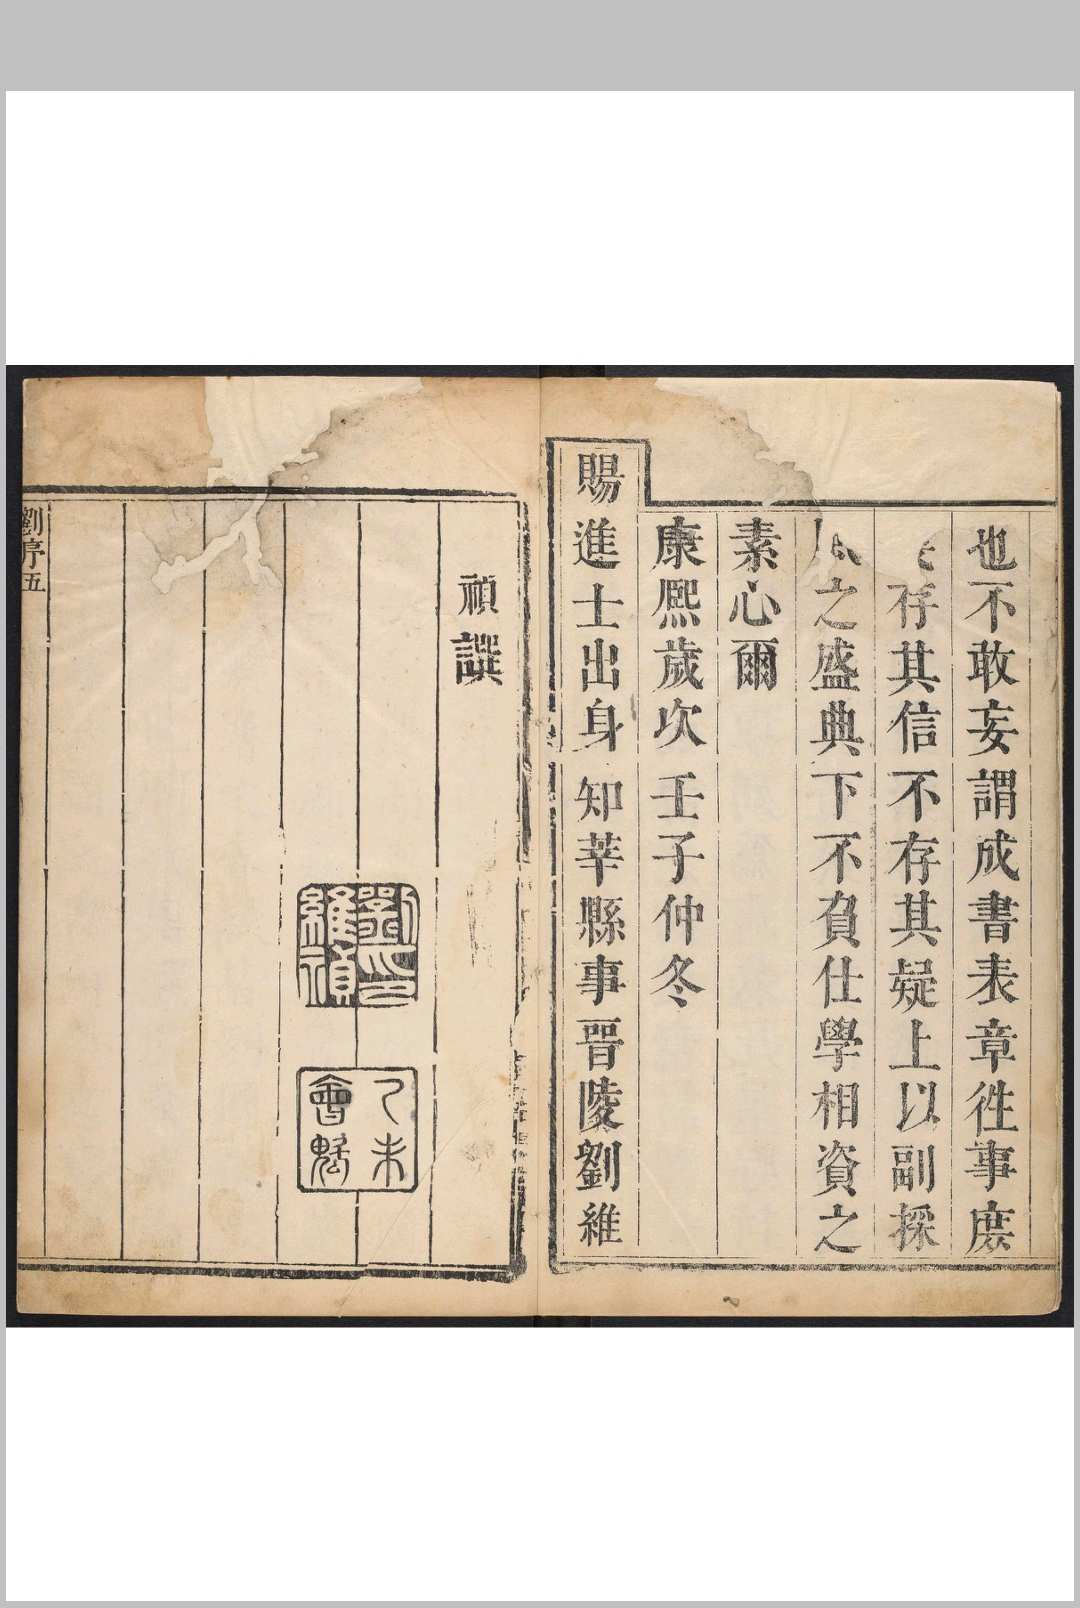 也不敢妄謂成書表章徃事庶
存其信不存其疑上以副採
風之盛典下不負仕學相資之
素心爾
康熙歲次壬子仲冬
賜進士出身知莘縣事晉陵劉維
禎譔
劉印
維禎
乙未
會魁
劉序五